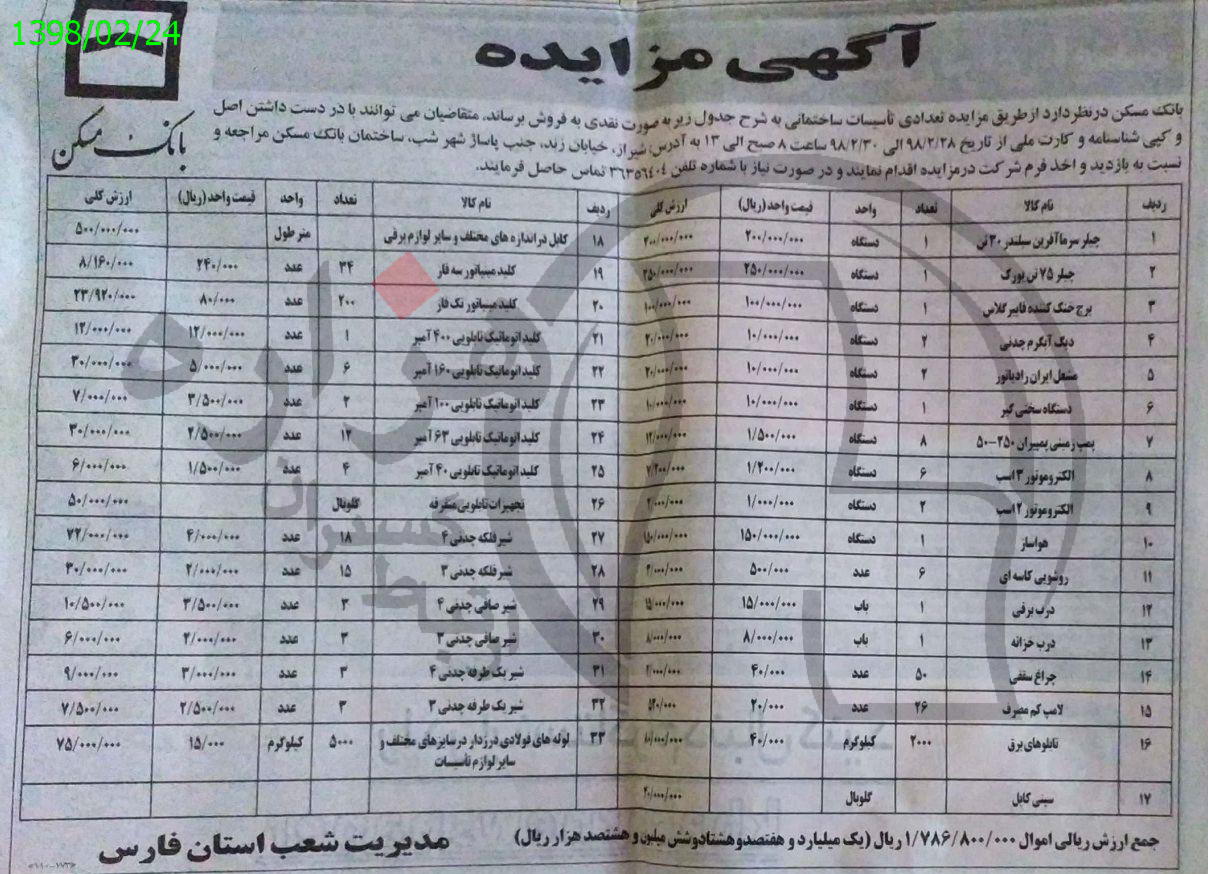 1398/02/24
آگهی مزایده
بانک مسکن
بانک مسکن درنظر دارد از طریق مزایده تعدادی تأسیسات ساختمانی به شرح جدول زیر به صورت نقدی به فروش برساند، متقاضیان می توانند با در دست داشتن اصل
و کپی شناسنامه و کارت ملی از تاریخ ۹۸/۲/۲۸ الی ۹۸/۲/۳۰ ساعت ۸ صبح الی ۱۳ به آدرس: شیراز، خیابان زند، جنب پاساژ شهر شب، ساختمان بانک مسکن مراجعه و
نسبت به بازدید و اخذ فرم شرکت درمزایده اقدام نمایند و در صورت نیاز با شماره تلفن ۳۶۳۵۶۴۰۴ تماس حاصل فرمایند.
ردیف نام کالا تعداد واحد قیمت واحد (ریال) ارزش کلی
۱ چیلر سرماآفرین سیلندر ۳۰ تن ۱ دستگاه ۲۰۰/۰۰۰/۰۰۰ ۲۰۰/۰۰۰/۰۰۰
۲ چیلر ۷۵ تن یورک ۱ دستگاه ۲۵۰/۰۰۰/۰۰۰ ۲۵۰/۰۰۰/۰۰۰
۳ برج خنک کننده فایبرگلاس ۱ دستگاه ۱۰۰/۰۰۰/۰۰۰ ۱۰۰/۰۰۰/۰۰۰
۴ دیگ آبگرم چدنی ۲ دستگاه ۱۰/۰۰۰/۰۰۰ ۲۰/۰۰۰/۰۰۰
۵ مشعل ایران رادیاتور ۲ دستگاه ۱۰/۰۰۰/۰۰۰ ۲۰/۰۰۰/۰۰۰
۶ دستگاه سختی گیر ۱ دستگاه ۱۰/۰۰۰/۰۰۰ ۱۰/۰۰۰/۰۰۰
۷ پمپ زمینی پمپیران ۲۵۰-۵۰ ۸ دستگاه ۱/۵۰۰/۰۰۰ ۱۲/۰۰۰/۰۰۰
۸ الکتروموتور ۳ اسب ۶ دستگاه ۱/۲۰۰/۰۰۰ ۷/۲۰۰/۰۰۰
۹ الکتروموتور ۲ اسب ۲ دستگاه ۱/۰۰۰/۰۰۰ ۲/۰۰۰/۰۰۰
۱۰ هواساز ۱ دستگاه ۱۵۰/۰۰۰/۰۰۰ ۱۵۰/۰۰۰/۰۰۰
۱۱ روشویی کاسه ای ۶ عدد ۵۰۰/۰۰۰
۱۲ درب برقی ۱ باب ۱۵/۰۰۰/۰۰۰ ۱۵/۰۰۰/۰۰۰
۱۳ درب خزانه ۱ باب ۸/۰۰۰/۰۰۰ ۸/۰۰۰/۰۰۰
۱۴ چراغ سقفی ۵۰ عدد ۴۰/۰۰۰ ۲/۰۰۰/۰۰۰
۱۵ لامپ کم مصرف ۲۶ عدد ۲۰/۰۰۰ ۵۲۰/۰۰۰
۱۶ تابلوهای برق ۲۰۰۰ کیلوگرم ۴۰/۰۰۰ ۸۰/۰۰۰/۰۰۰
۱۷ سینی کابل گلوبال ۲۰/۰۰۰/۰۰۰
ردیف نام کالا تعداد واحد قیمت واحد (ریال) ارزش کلی
۱۸ کابل در اندازه های مختلف و سایر لوازم برقی متر طول ۵۰۰/۰۰۰/۰۰۰
۱۹ کلید مینیاتور سه فاز ۳۴ عدد ۲۴۰/۰۰۰ ۸/۱۶۰/۰۰۰
۲۰ کلید مینیاتور تک فاز ۲۰۰ عدد ۸۰/۰۰۰ ۲۳/۹۲۰/۰۰۰
۲۱ کلید اتوماتیک تابلویی ۴۰۰ آمپر ۱ عدد ۱۲/۰۰۰/۰۰۰ ۱۲/۰۰۰/۰۰۰
۲۲ کلید اتوماتیک تابلویی ۱۶۰ آمپر ۶ عدد ۵/۰۰۰/۰۰۰ ۳۰/۰۰۰/۰۰۰
۲۳ کلید اتوماتیک تابلویی ۱۰۰ آمپر ۲ عدد ۳/۵۰۰/۰۰۰ ۷/۰۰۰/۰۰۰
۲۴ کلید اتوماتیک تابلویی ۶۳ آمپر ۱۲ عدد ۲/۵۰۰/۰۰۰ ۳۰/۰۰۰/۰۰۰
۲۵ کلید اتوماتیک تابلویی ۴۰ آمپر ۴ عدد ۱/۵۰۰/۰۰۰ ۶/۰۰۰/۰۰۰
۲۶ تجهیزات تابلویی متفرقه گلوبال ۵۰/۰۰۰/۰۰۰
۲۷ شیر فلکه چدنی ۴ ۱۸ عدد ۴/۰۰۰/۰۰۰ ۷۲/۰۰۰/۰۰۰
۲۸ شیر فلکه چدنی ۳ ۱۵ عدد ۲/۰۰۰/۰۰۰ ۳۰/۰۰۰/۰۰۰
۲۹ شیر صافی چدنی ۴ ۳ عدد ۳/۵۰۰/۰۰۰ ۱۰/۵۰۰/۰۰۰
۳۰ شیر صافی چدنی ۳ ۳ عدد ۲/۰۰۰/۰۰۰ ۶/۰۰۰/۰۰۰
۳۱ شیر یک طرفه چدنی ۴ ۳ عدد ۳/۰۰۰/۰۰۰ ۹/۰۰۰/۰۰۰
۳۲ شیر یک طرفه چدنی ۳ ۳ عدد ۲/۵۰۰/۰۰۰ ۷/۵۰۰/۰۰۰
۳۳ لوله های فولادی درزدار در سایزهای مختلف و ۵۰۰۰ کیلوگرم ۱۵/۰۰۰ ۷۵/۰۰۰/۰۰۰
سایر لوازم تأسیسات
جمع ارزش ریالی اموال ۱/۷۸۶/۸۰۰/۰۰۰ ریال (یک میلیارد و هفتصدو هشتادوشش میلیون و هشتصد هزار ریال)
مدیریت شعب استان فارس